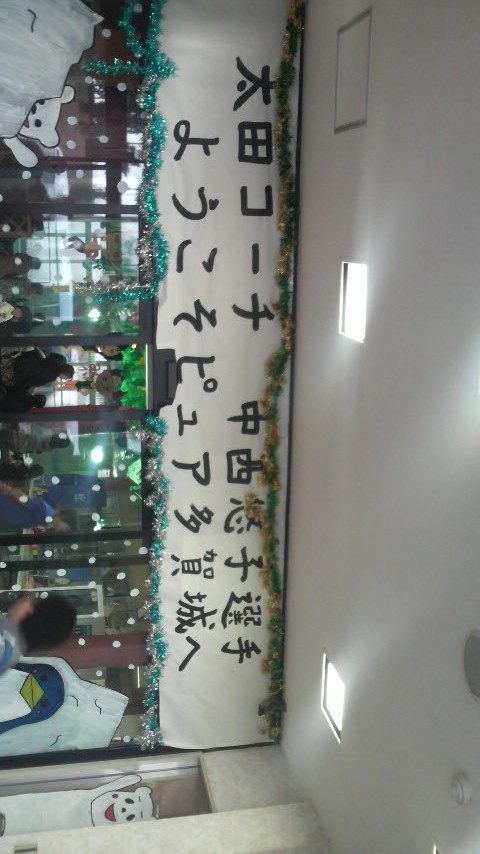 太田コーチ 中西悠子選手
ようこそピュア多賀城へ